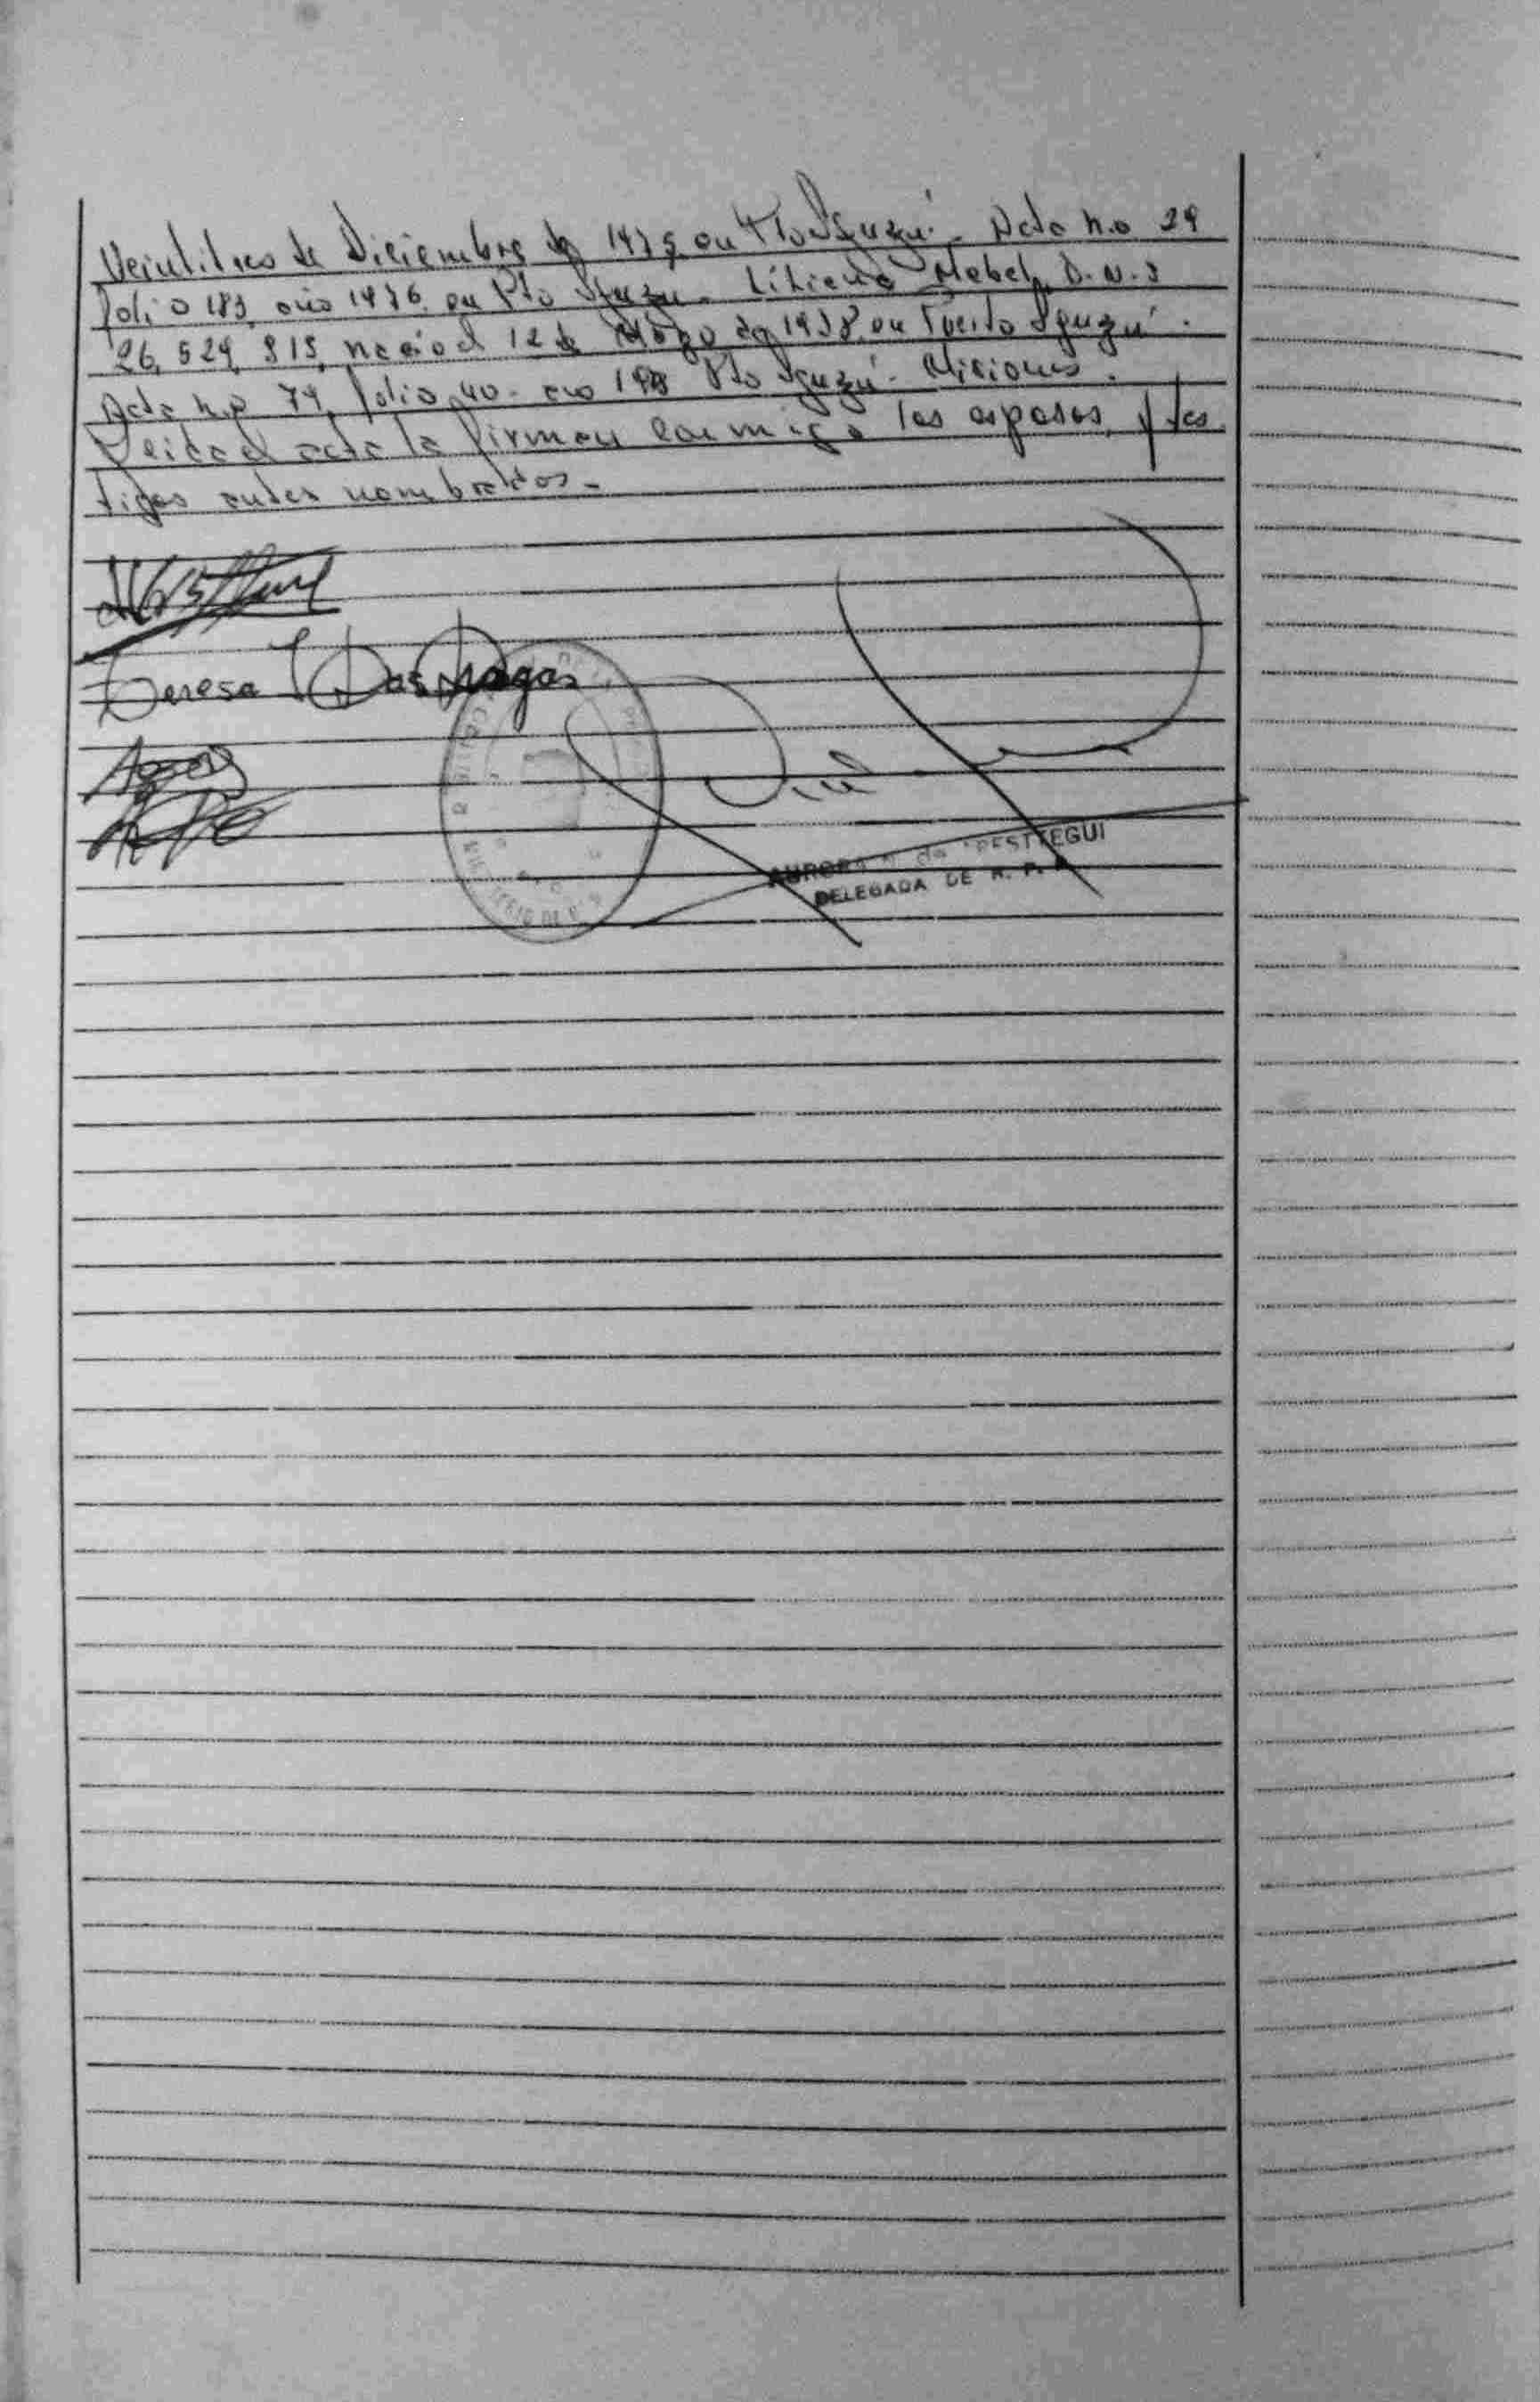 Veintitres de Diciembre de 1975 en Pto Iguazú. Acta n.o 29
folio 183, año 1976, en Pto Iguazu. Liliana Mabel, D.N.I
26,529,815, nacio el 12 de Marzo de 1978 en Puerto Iguazú.
Acta n.o 79, folio 40. año 1978 Pto Iguazú. Misiones.
Leida el acta la firman conmigo los esposos, y tes
tigos antes nombrados.
Teresa Das Chagas
AURORA de
DELEGADA DE R. P.